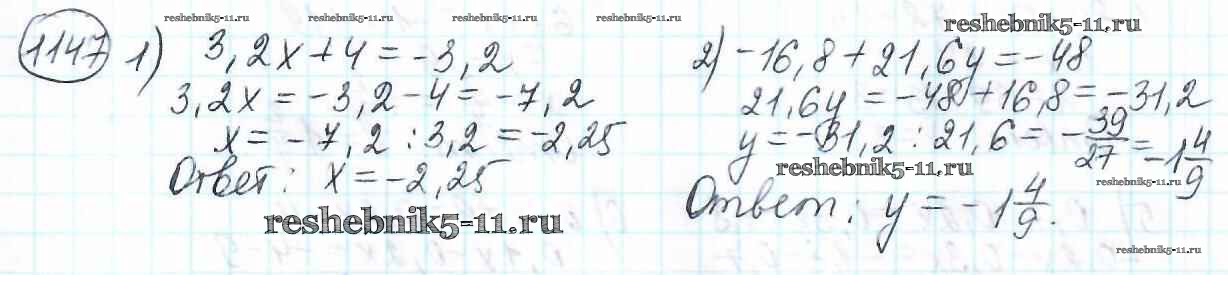 reshebnik5-11.ru reshebnik5-11.ru reshebnik5-11.ru
1147 1) 3,2x + 4 = -3,2
3,2x = -3,2 - 4 = -7,2
x = -7,2 : 3,2 = -2,25
Ответ: x = -2,25
reshebnik5-11.ru
2) -16,8 + 21,6y = -48
21,6y = -48 + 16,8 = -31,2
y = -31,2 : 21,6 = -39/27 = -1 4/9
reshebnik5-11.ru reshebnik5-11.ru
Ответ: y = -1 4/9.
reshebnik5-11.ru